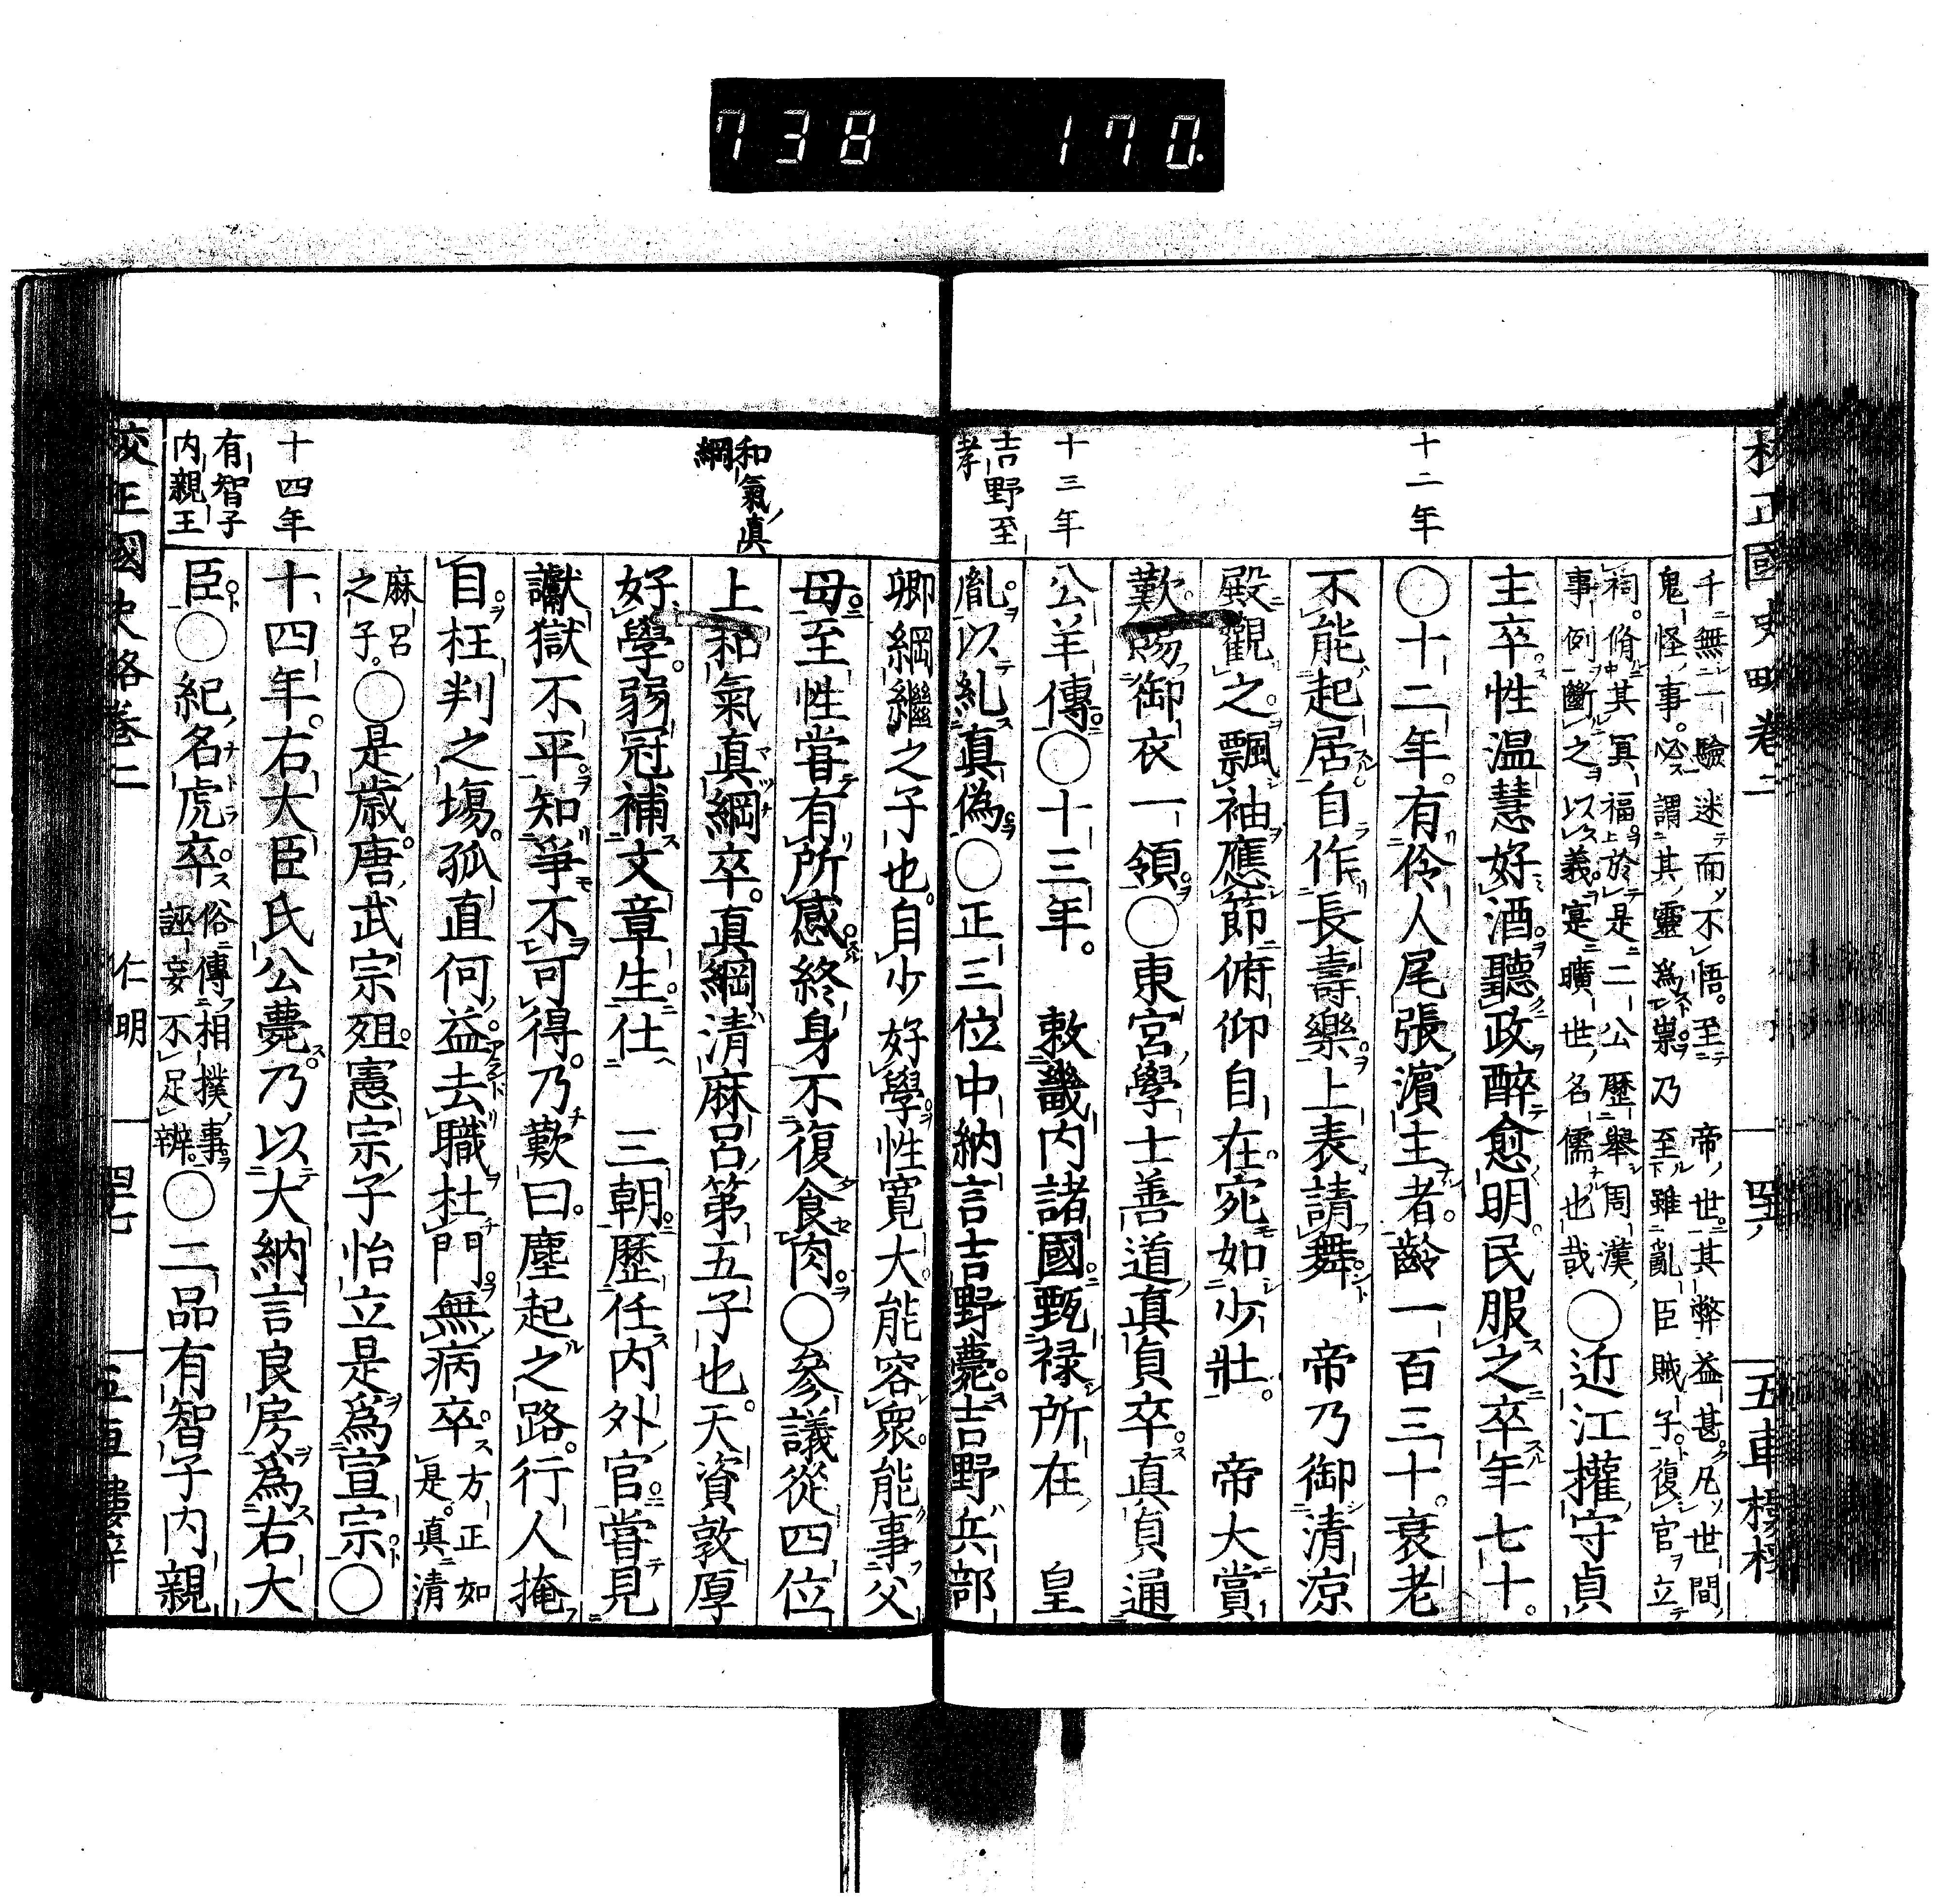 738 170.
校正國史略卷二 五車樓梓
千無一驗迷而不悟至 帝世其弊益甚凡世間
鬼怪事必謂其靈爲祟乃至雖亂臣賊子復官立
祠脩其冥福於是二公歷舉周漢
事例斷之以義寔曠世名儒也哉
○近江權守貞
主卒性温慧好酒聽政醉愈明民服之卒年七十
十二年
○十二年有伶人尾張濱主者齡一百三十衰老
不能起居自作長壽樂上表請舞 帝乃御清涼
殿觀之飄袖應節俯仰自在宛如少壯 帝大賞
歎賜御衣一領○東宮學士善道真貞卒真貞通
十三年
公羊傳○十三年 敕畿内諸國甄禄所在 皇
吉野至孝
胤以糺真偽○正三位中納言吉野薨吉野兵部
卿綱繼之子也自少好學性寬大能容衆能事父
母至性嘗有所感終身不復食肉○參議從四位
和氣真綱
上和氣真綱卒真綱清麻呂第五子也天資敦厚
好學弱冠補文章生仕 三朝歷任内外官嘗見
讞獄不平知爭不可得乃歎曰塵起之路行人掩
目枉判之塲孤直何益去職杜門無病卒
方正如
是真清
麻呂
之子
○是歲唐武宗殂憲宗子怡立是爲宣宗○
十四年
十四年右大臣氏公薨乃以大納言良房爲右大
有智子内親王
臣○紀名虎卒
俗傳相撲事
誣妄不足辨
○二品有智子内親
校正國史略卷二 仁明 四七 五車樓梓